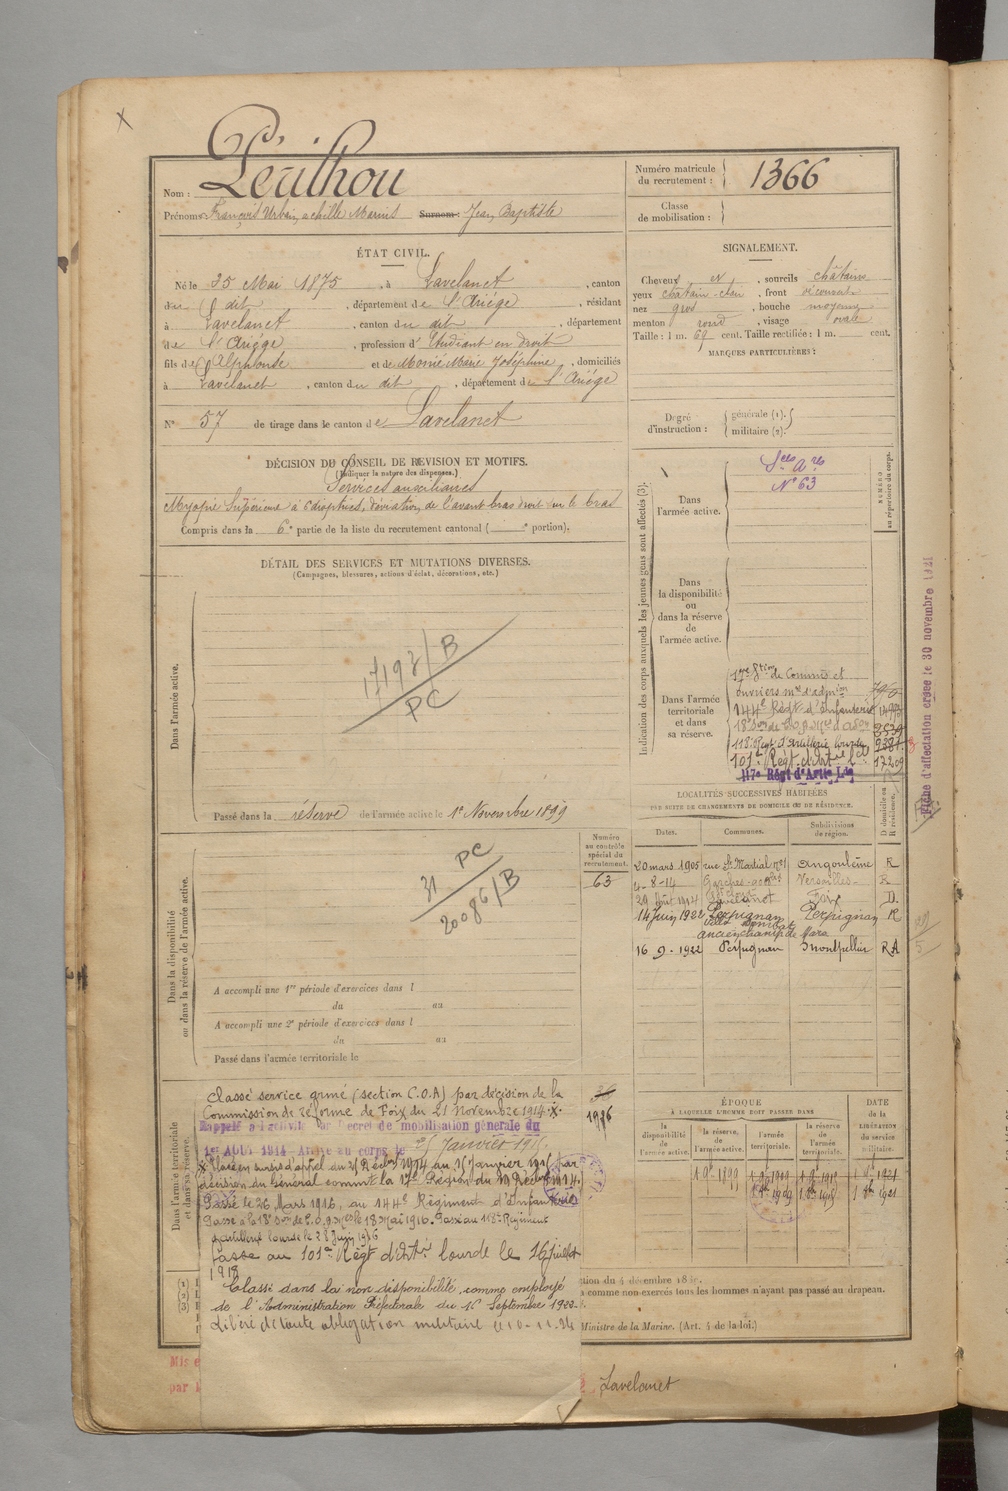 X
Nom : Périlhou
Prénoms : François Urbain, achille Marius Surnom : Jean, Baptiste
Numéro matricule du recrutement : 1366
Classe de mobilisation :
ÉTAT CIVIL.
Né le 25 Mai 1875, à Lavelanet, canton
du dit, département de l'Ariége, résidant
à Lavelanet, canton du dit, département
de l'Ariège, profession d'Etudiant en droit
fils de Alphonse et de Monié Marie Joséphine, domiciliés
à Lavelanet, canton du dit, département de l'Ariége
N° 57 de tirage dans le canton de Lavelanet
SIGNALEMENT.
Cheveux N, sourcils châtains
yeux châtain-clair, front découvert
nez gros, bouche moyenne
menton rond, visage ovale
Taille : 1 m. 69 cent. Taille rectifiée : 1 m. cent.
MARQUES PARTICULIÈRES :
Degré d'instruction : générale (1). militaire (2).
DÉCISION DU CONSEIL DE REVISION ET MOTIFS.
(Indiquer la nature des dispenses.)
Services auxiliaires
Myopie Supérieure à 6 dioptries, déviation de l'avant bras droit sur le bras
Compris dans la 6e partie de la liste du recrutement cantonal ( e portion).
DÉTAIL DES SERVICES ET MUTATIONS DIVERSES.
(Campagnes, blessures, actions d'éclat, décorations, etc.)
Dans l'armée active.
PC
Passé dans la réserve de l'armée active le 1er Novembre 1899
Indication des corps auxquels les jeunes gens sont affectés (3).
NUMÉRO au répertoire du corps.
Dans l'armée active.
Sces Ares
N° 63
Dans la disponibilité ou dans la réserve de l'armée active.
Dans l'armée territoriale et dans sa réserve.
17me Son de Commis et
ouvriers mre d'admion
144e Régt d'Infanterie
118e Régt d'Artillerie lourde
101e Régt d'Artie lde
117e Régt d'Artie Lde
Fiche d'affectation créée le 30 novembre 1921
LOCALITÉS SUCCESSIVES HABITÉES
PAR SUITE DE CHANGEMENTS DE DOMICILE OU DE RÉSIDENCE.
Dates. Communes. Subdivisions de région. D domicile ou R résidence.
20 mars 1905 rue St Martial n°1 Angoulême R
4-8-14 Garches Versailles R
29 Août 1914 Lavelanet Foix D
14 Juin 1922 Perpignan Perpignan R
ancien champ de Mars
16-9-1922 Perpignan Montpellier RA
Numéro au contrôle spécial du recrutement.
63
Dans la disponibilité ou dans la réserve de l'armée active.
31 PC
20086/B
A accompli une 1re période d'exercices dans l
du au
A accompli une 2e période d'exercices dans l
du au
Passé dans l'armée territoriale le
Dans l'armée territoriale et dans sa réserve.
Classé service armé (section C.O.A) par décision de la
Commission de réforme de Foix du 21 Novembre 1914.
Rappelé à l'activité par Décret de mobilisation générale du
1er AOUT 1914 Arrivé au corps le 25 Janvier 1915.
décision du Général commt la 17e Région du 19 Décbre 1914.
Passé le 26 Mars 1916, au 144e Régiment d'Infanterie
Passé au 118e Régiment
d'artillerie lourde le 28 Juin 1916
Passé au 101e Régt d'Artie lourde le 16 juillet
1918
Classé dans la non disponibilité comme employé
de l'Administration Préfectorale du 16 Septembre 1922.
Libéré de toute obligation militaire le 10-11-24
ÉPOQUE
À LAQUELLE L'HOMME DOIT PASSER DANS
la disponibilité de l'armée active. la réserve de l'armée active. l'armée territoriale. la réserve de l'armée territoriale.
DATE de la LIBÉRATION du service militaire.
1 9bre 1899
à comme non-exercés tous les hommes n'ayant pas passé au drapeau.
Ministre de la Marine. (Art. 4 de la loi.)
Lavelanet